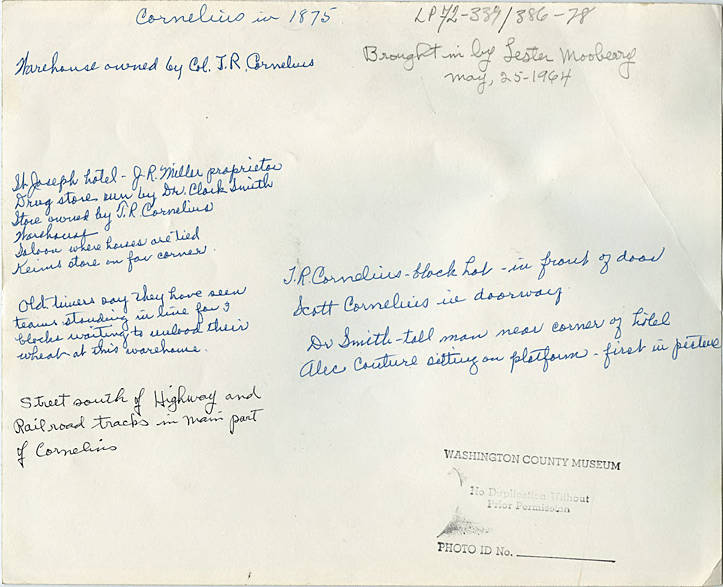 Cornelius in 1875
LP72-339/386-78
Warehouse owned by Col. T.R. Cornelius
Brought in by Lester Mooberry
May, 25-1964
St. Joseph hotel - J.R. Miller proprietor
Drug store run by Dr. Clark Smith
Store owned by T.R. Cornelius
Warehouse
Saloon where horses are tied
Keims store on far corner.
Old timers say they have seen
teams standing in line for 3
blocks waiting to unload their
wheat at this warehouse.
Street south of Highway and
Railroad tracks in main part
of Cornelius
T.R. Cornelius - black hat - in front of door
Scott Cornelius in doorway
Dr Smith - tall man near corner of hotel
Alec Couture sitting on platform - first in picture
WASHINGTON COUNTY MUSEUM
No Duplication Without
Prior Permission
PHOTO ID No.